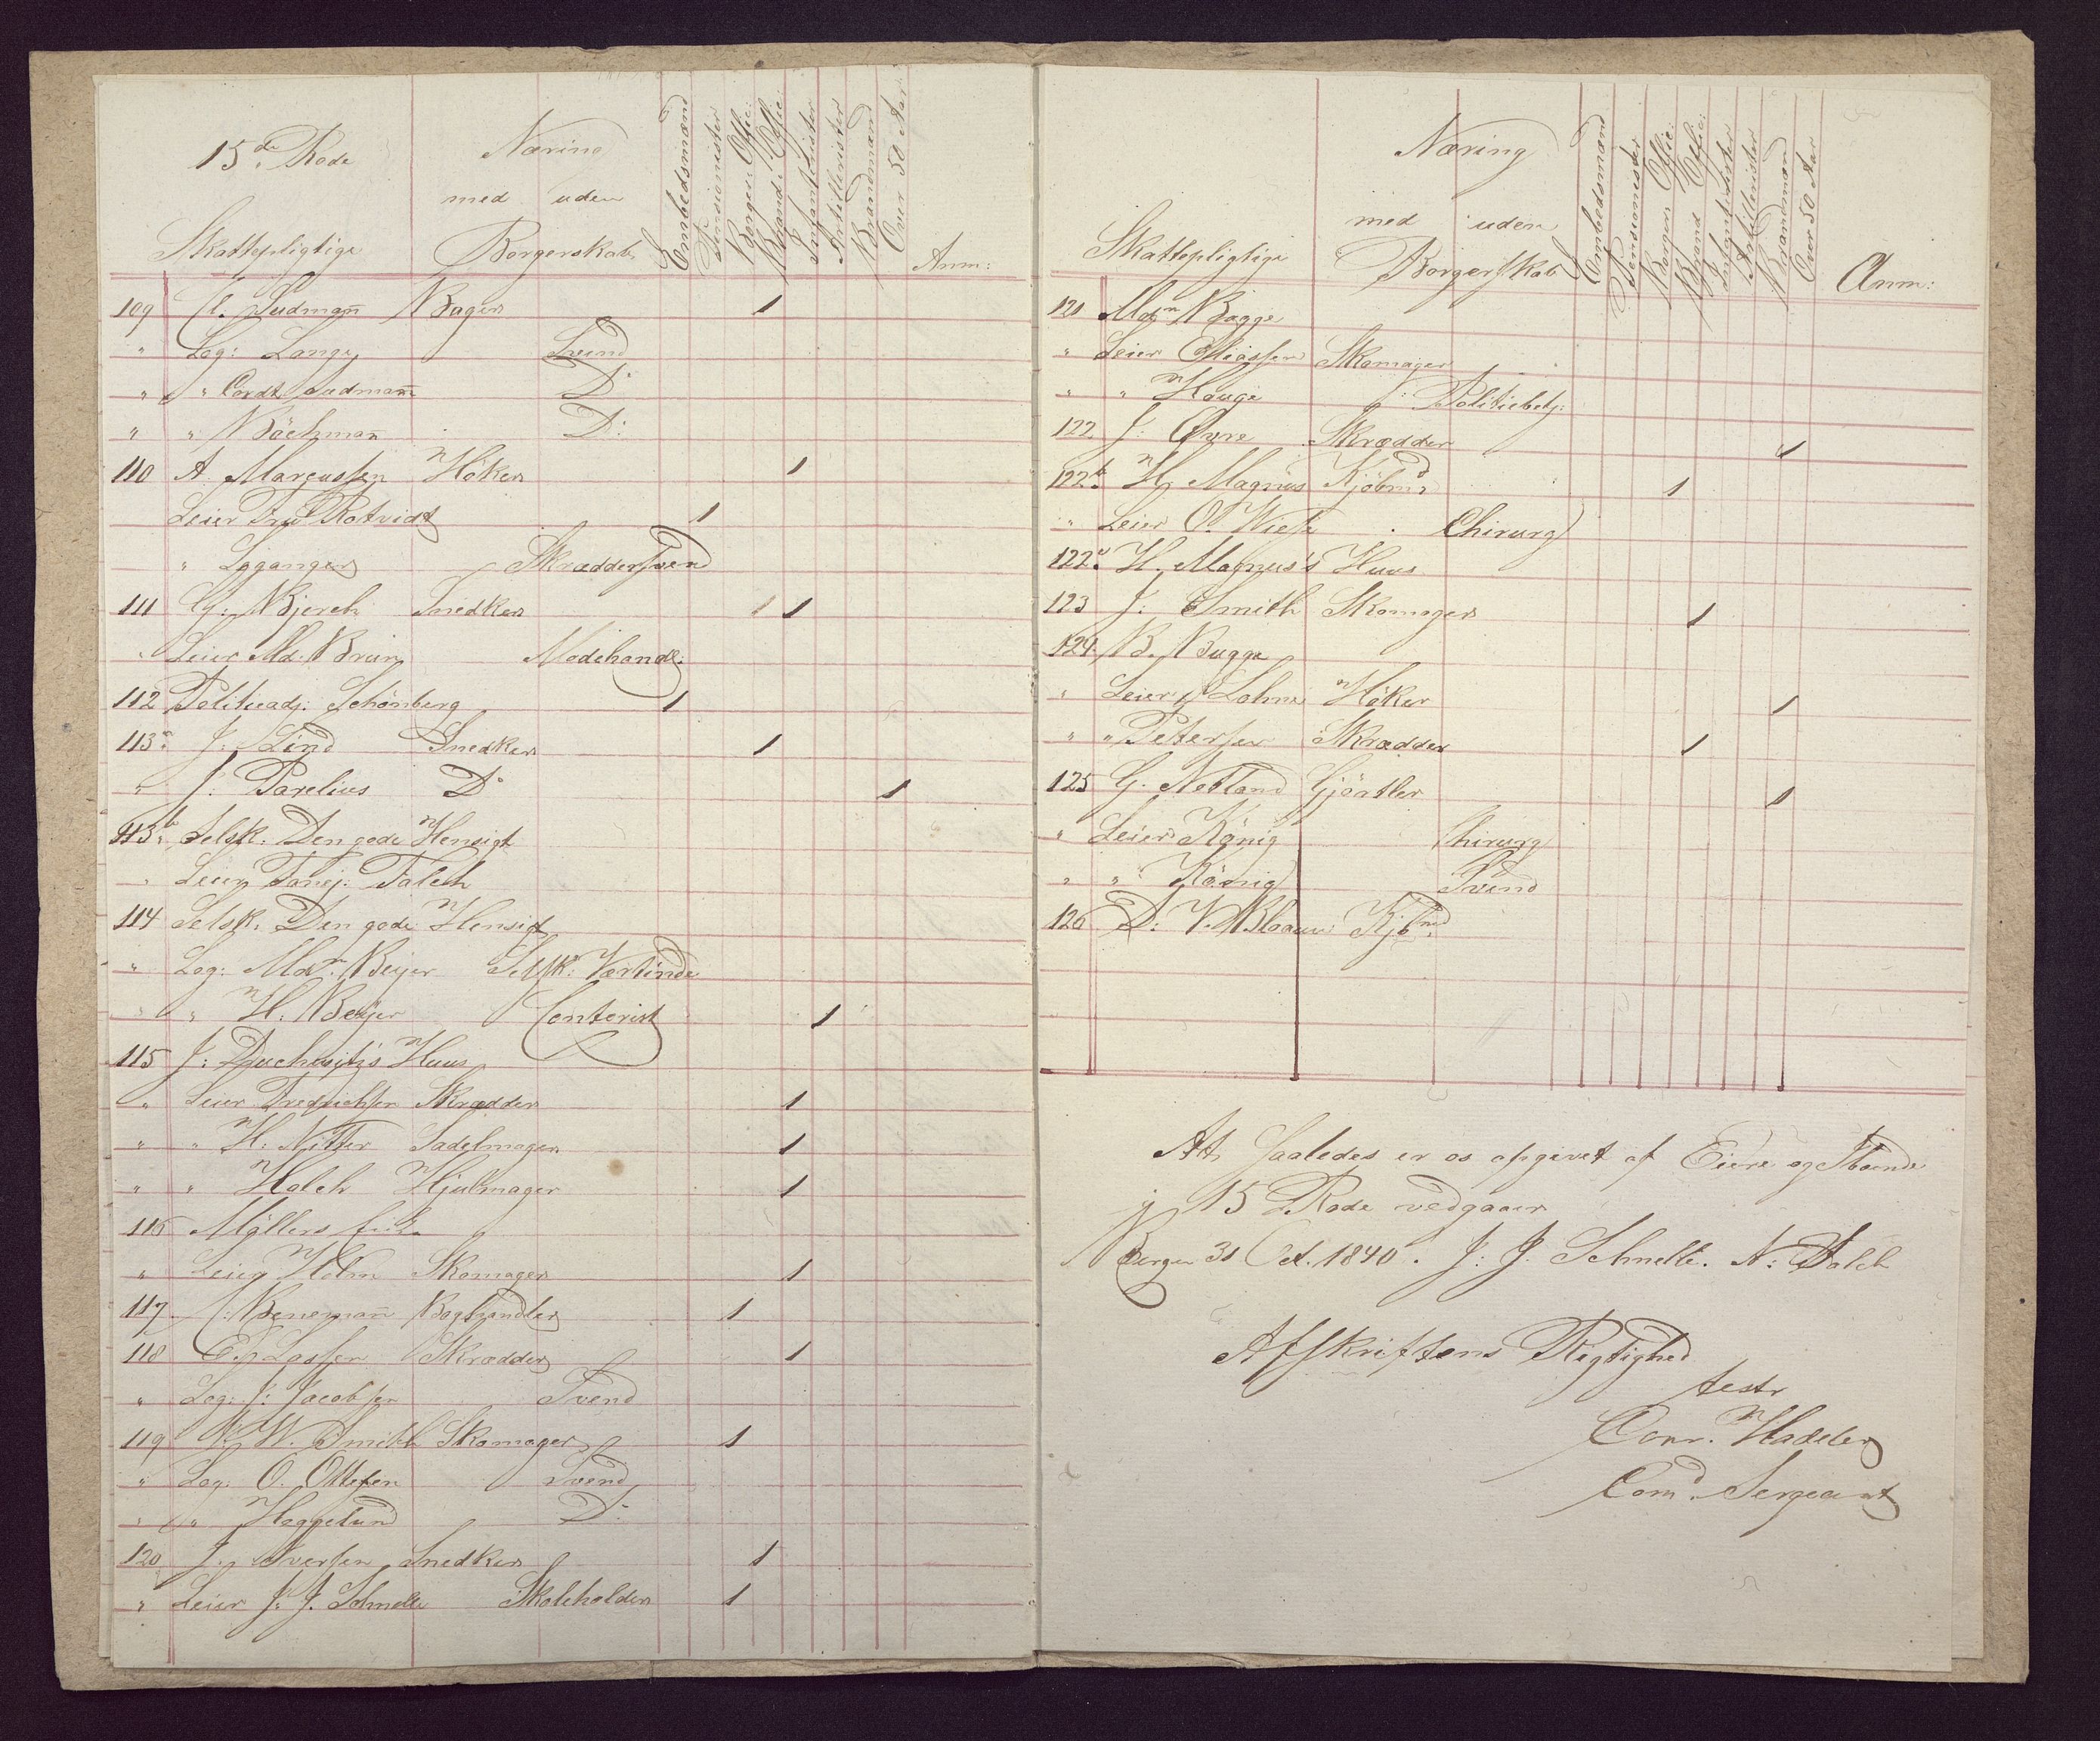 15de Rode
Næring
med uden
Skattepligtige Borgerskab
Embedsmænd
Pensionister
Borger Offic:
Brand Offic:
Infanterister
Artillerister
Brandmænd
Over 50 Aar
Anm:
109 Cl. Sudman̄ Bager 1
" Log: Lange Svend
" " Cordt Sudman̄ Do
" " Böchman̄ Do
110 A. Marcussen Høker 1
Leier Fru Rotvidt 1
" Lyganger Skrædersvend
111 G: Bjerch Snedker 1 1
" Leier Md. Brun Modehandl:
112 Politiadj: Schönberg 1
113a J: Lind Snedker 1
" J: Parelius Do 1
113b Selsk. Den gode Hensigt
" Leier Torvej: Falch
114 Selsk. Den gode Hensigt
" Log: Mdm Beyer Selsk: Værtinde
" " H: Beyer Contorist 1
115 J: Huus
" Leier Fredrichsen Skrædder 1
" " H: Nitter Sadelmager 1
" " Holch Hjulmager 1
116 Möllers Enke
" Leier Holm Skomager 1
117 C: Beneman̄ Boghandler 1
118 E. Lassen Skrædder 1
" Log: J: Jacobsen Svend
119 W. Smith Skomager 1
" Log: O. Ottesen Svend
" " Heggelund Do
120 J. Iversen Snedker 1
" Leier J: J. Schnelle Skoleholder 1
Næring
med uden
Skattepligtige Borgerskab
Embedsmænd
Pensionister
Borger Offic:
Brand Offic:
Infanterister
Artillerister
Brandmænd
Over 50 Aar
Anm:
121 Mdm Bagge
" Leier Eliassen Skomager
" " Hauge Politiebetj:
122 J: Øvre Skrædder 1
122b H. Magnus Kjöbmd 1
" Leier O. Wiese Chirurg
122c H. Magnus's Huus
123 J: Smith Skomager 1
124 B. Bugge
" Leier Lohne Höker 1
" " Petersen Skrædder 1
125 G. Netland Gjörtler 1
" Leier König Chirurg
" " König Svend
126 D: V. Blaauw Kjbmd
At saaledes er os opgivet af Eiere og Iboende
i 15 Rode vedgaaer
Bergen 31 Oct. 1840. J: J. Schnelle. N: Dalch
Afskriftens Rigtighed
testr
Conr. Hadeler
Comd. Sergeant